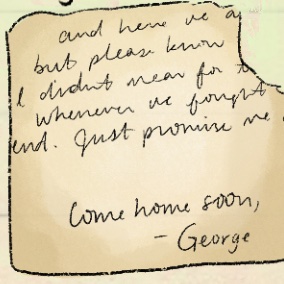 and here we a
but please know
I didn't mean for t
whenever we fought
end. Just promise me
Come home soon,
- George